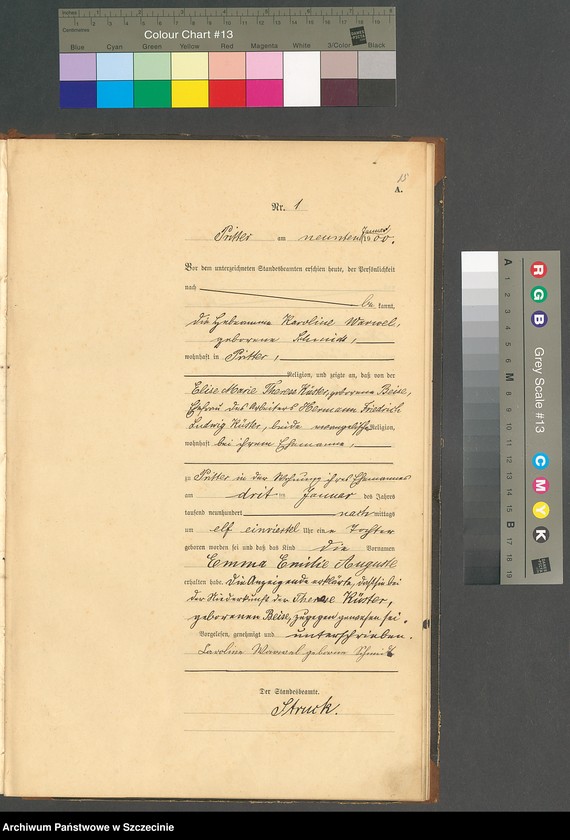 Colour Chart #13
Blue Cyan Green Yellow Red Magenta White 3/Color Black
15
A.
Nr. 1
Pritter am neunten Januar 1900.
Vor dem unterzeichneten Standesbeamten erschien heute, der Persönlichkeit
nach
be kannt,
die Hebeamme Karoline Warwel,
geborene Schmidt,
wohnhaft in Pritter,
Religion, und zeigte an, daß von der
Elise Marie Therese Küster, geborene Beise,
Ehefrau des Arbeiters Hermann Friedrich
Ludwig Küster, beide evangelischer Religion,
wohnhaft bei ihrem Ehemanne,
zu Pritter in der Wohnung ihres Ehemannes
am dritten Januar des Jahres
tausend neunhundert nach mittags
um elf einviertel Uhr eine Tochter
geboren worden sei und daß das Kind die Vornamen
Emma Emilie Auguste
erhalten habe. Die Anzeigende erklärte, daß sie bei
der Niederkunft der Therese Küster,
geborenen Beise, zugegen gewesen sei.
Vorgelesen, genehmigt und unterschrieben.
Caroline Warwel geborne Schmidt
Der Standesbeamte.
Struck.
Grey Scale #13
R G B C M Y K
A 1 2 3 4 5 6 M 8 9 10 11 12 13 14 15 B 17 18 19
Archiwum Państwowe w Szczecinie